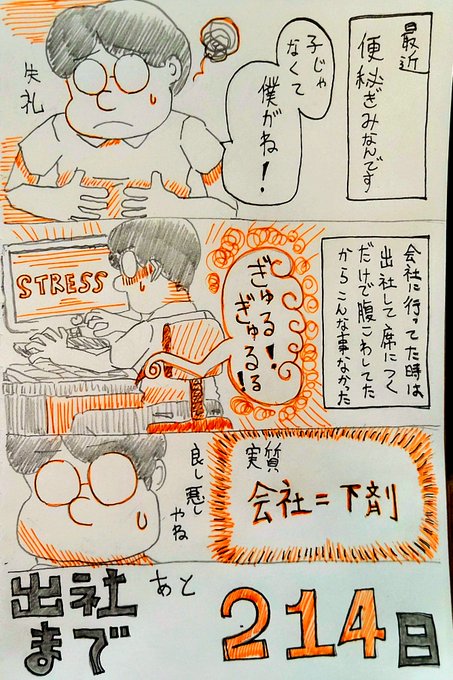 最近
便秘ぎみなんです
子じゃ
なくて
僕がね!
失礼
会社に行ってた時は
出社して席につく
だけで腹こわしてた
からこんな事なかった
STRESS
ぎゅる!
ぎゅるる!
実質
会社=下剤
良し悪し
やね
出社
まで
あと
214日